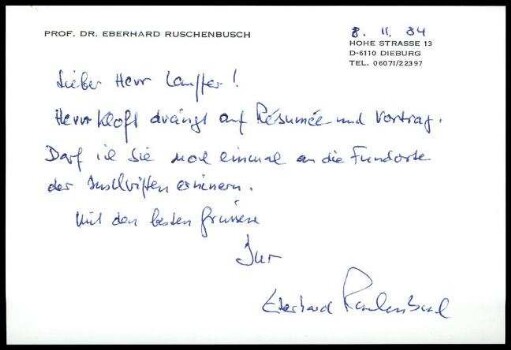 PROF. DR. EBERHARD RUSCHENBUSCH
8. 11. 84
HOHE STRASSE 13
D-6110 DIEBURG
TEL. 06071/22397
Lieber Herr Lauffer!
Herr Kloft drängt auf Résumée und Vortrag.
Darf ich Sie noch einmal an die Fundorte
der Inschriften erinnern.
Mit den besten Grüssen
Ihr
Eberhard Ruschenbusch